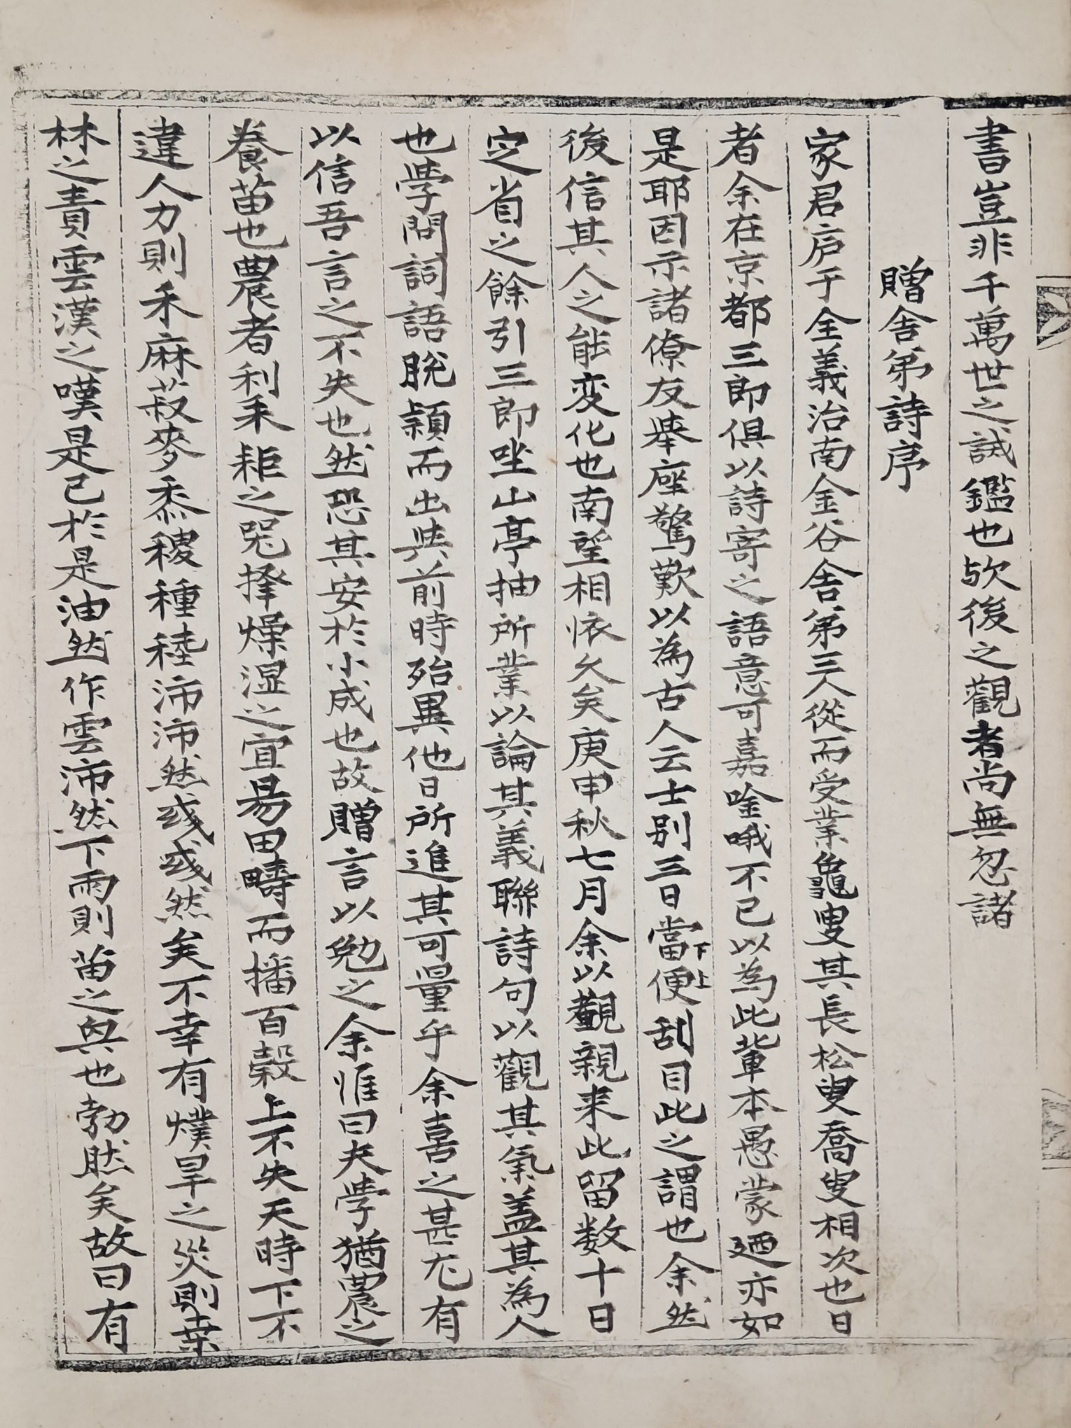 書豈非千萬世之誡鑑也欤後之觀者尚無忽諸
贈舎弟詩序
家君庐于全義治南金谷舍弟三人從而受業龜叟其長松叟喬叟相次也日
者余在京都三郎俱以詩寄之語意可嘉唫哦不已以為此輩本愚蒙廼亦如
是耶因示諸僚友舉座驚歎以為古人云士别三日當便刮目此之謂也余然
下上
後信其人之能変化也南望相依久矣庚申秋七月余以觀親来此留数十日
定省之餘引三郎坐山亭抽所業以論其義聯詩句以觀其氣盖其為人
也學問詞語脫穎而出與前時殆異他日所進其可量乎余喜之甚尤有
以信吾言之不失也然恐其安於小成也故贈言以勉之余惟曰夫學猶農之
養苗也農者利耒耟之器擇燥湿之宜昜田疇而播百穀上不失天時下不
違人力則禾麻菽麥黍稷種稑沛沛然彧彧然矣不幸有熯旱之災則桒
林之責雲漢之嘆是已於是油然作雲沛然下雨則苗之興也勃然矣故曰有